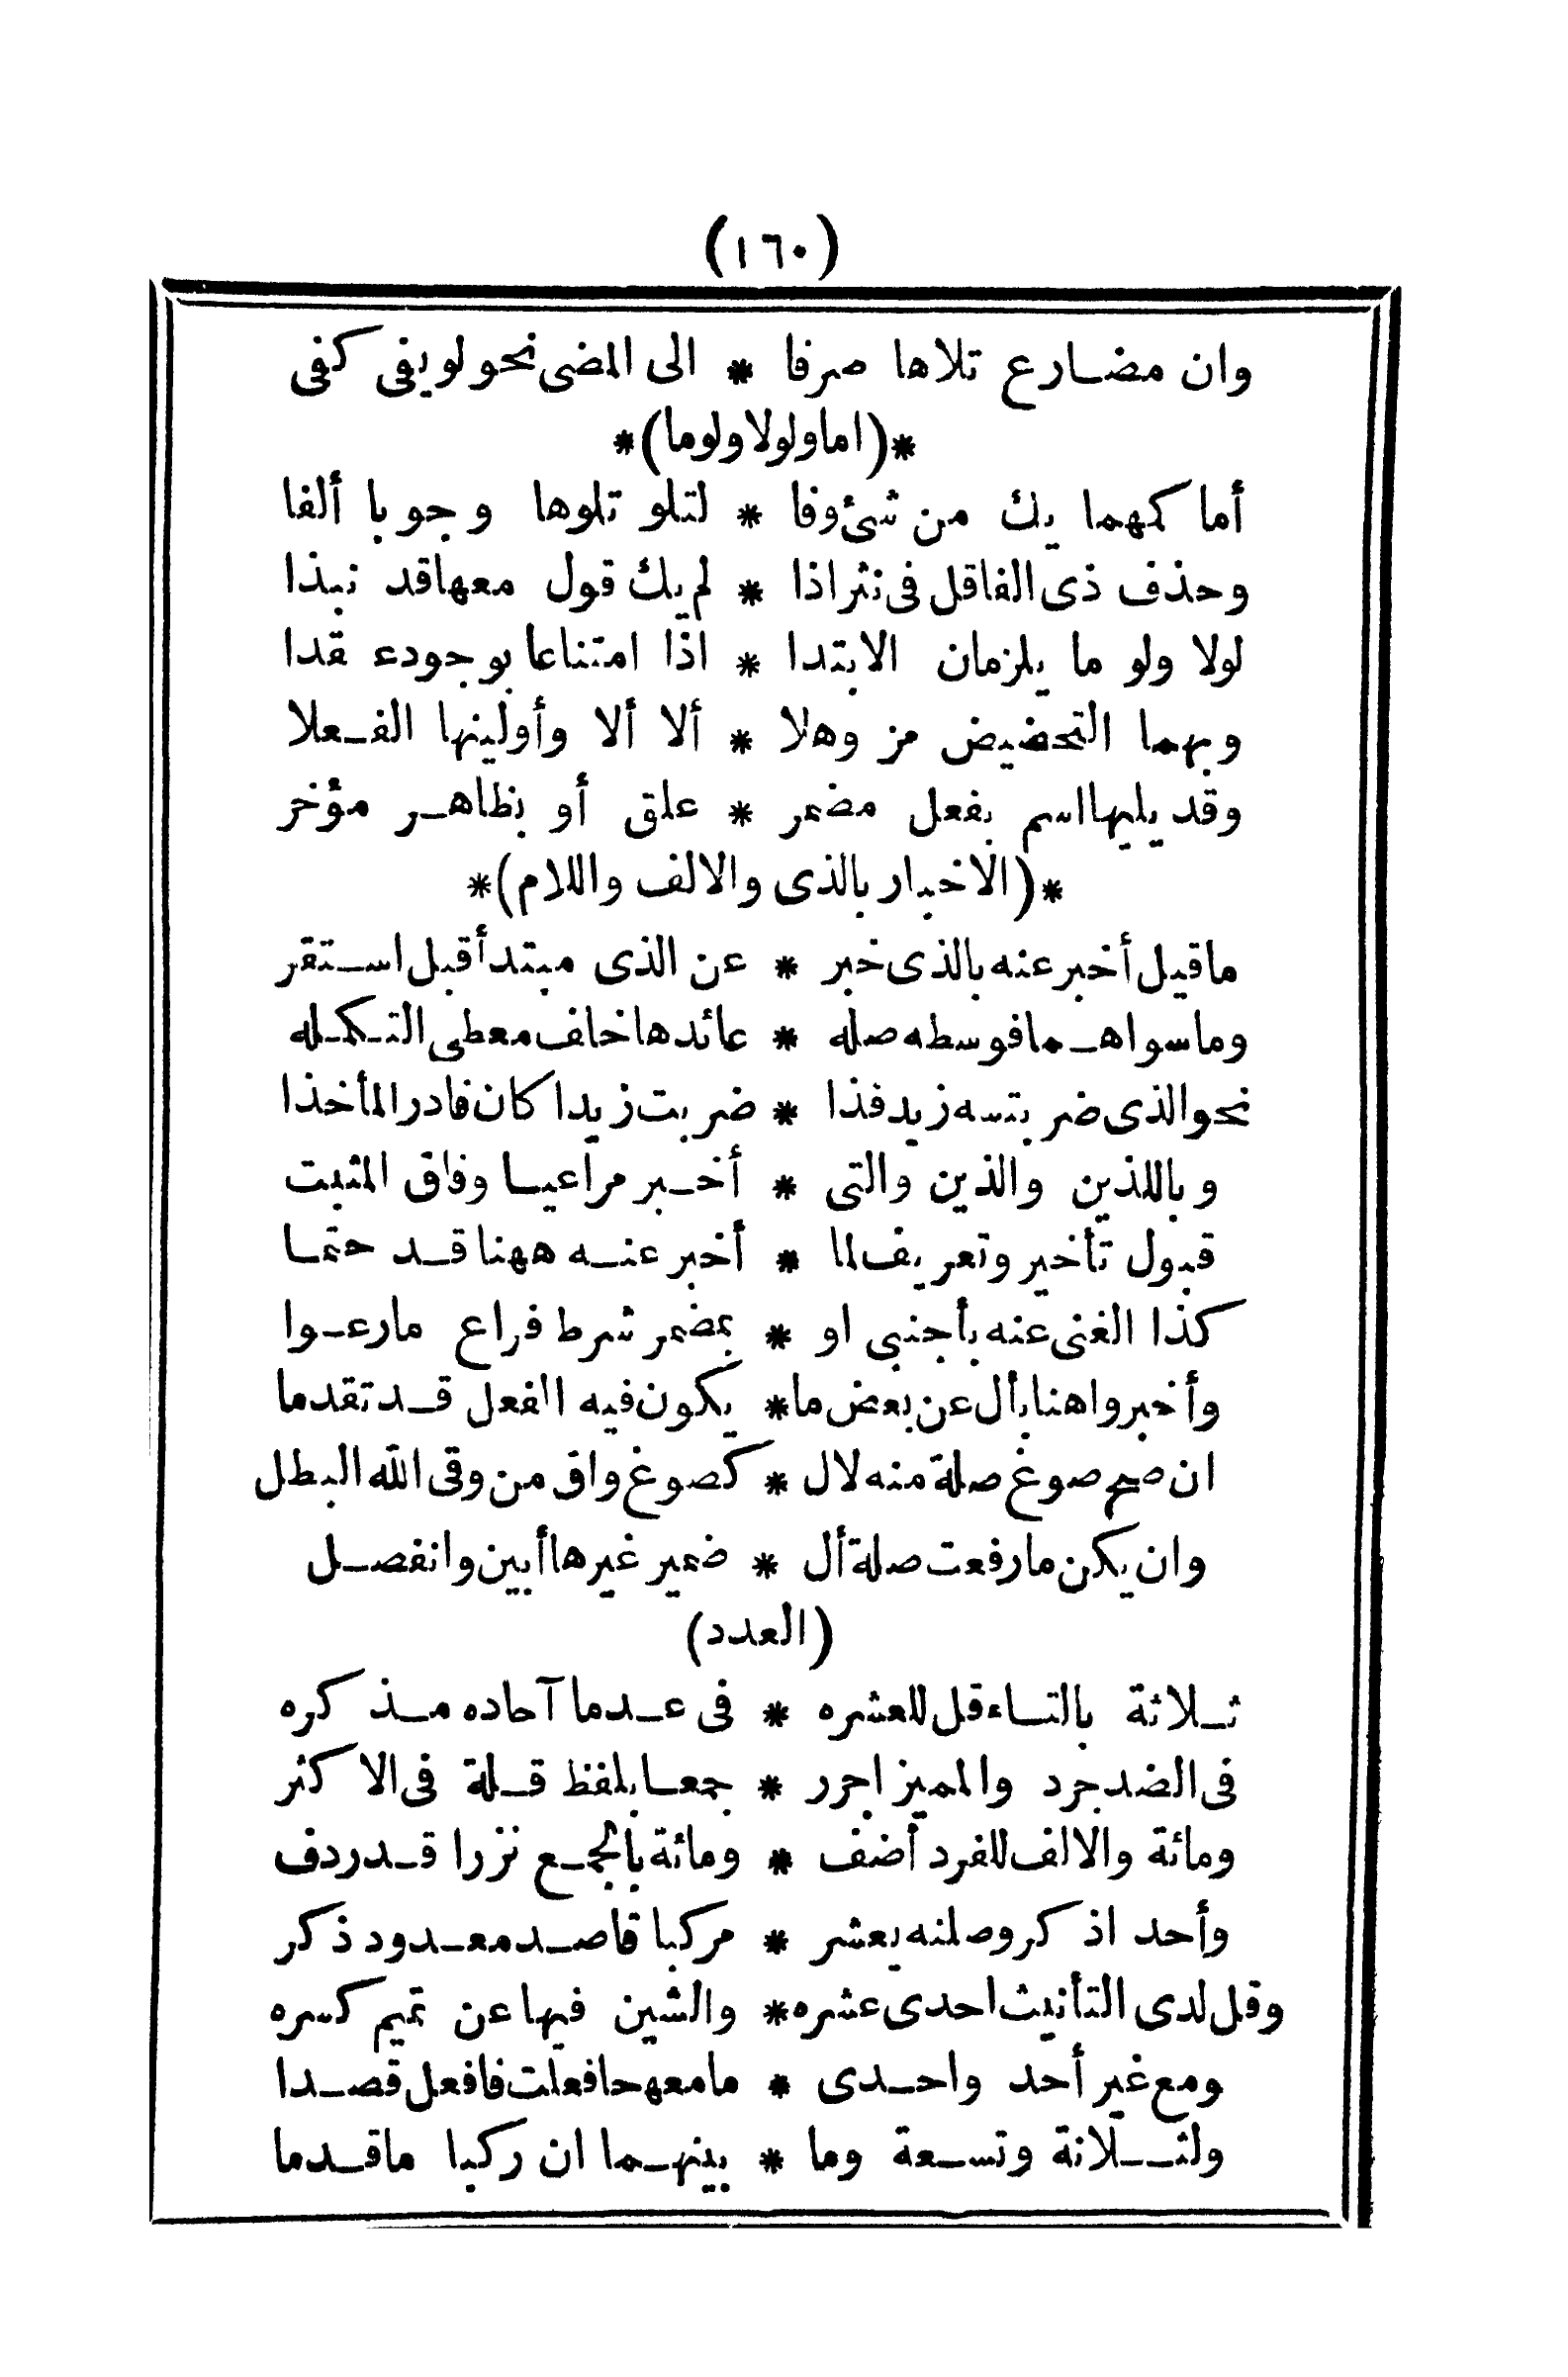 (١٦٠)
وان مضارع تلاها صرفا * الى المضى نحو لو يفى كفى
*(اما ولولا ولوما)*
أما كمهما يك من شئ وفا * لتلو تلوها وجوبا ألفا
وحذف ذى الفاقل فى نثر اذا * لم يك قول معها قد نبذا
لولا ولو ما يلزمان الابتدا * اذا امتناعا بوجود عقدا
وبهما التحضيض مز وهلا * ألا ألا وأولينها الفعلا
وقد يليها اسم بفعل مضمر * علق أو بظاهر مؤخر
*(الاخبار بالذى والالف واللام)*
ما قيل أخبر عنه بالذى خبر * عن الذى مبتدأ قبل استقر
وما سواهما فوسطه صله * عائدها خلف معطى التكمله
نحو الذى ضربتسه زيد فذا * ضربت زيدا كان فادر المأخذا
وباللذين والذين والتى * أخبر مراعيا وفاق المثبت
قبول تأخير وتعريف لما * أخبر عنه ههنا قد حتما
كذا الغنى عنه بأجنبى او * بمضمر شرط فراع ما رعوا
وأخبروا هنا بأل عن بعض ما * يكون فيه الفعل قد تقدما
ان صح صوغ صلة منه لال * كصوغ واق من وقى الله البطل
وان يكن ما رفعت صلة أل * ضمير غيرها أبين وانفصل
(العدد)
ثلاثة بالتاء قل للعشره * فى عد ما آحاده مذكره
فى الضد جرد والمميز اجرر * جمعا بلفظ قلة فى الاكثر
ومائة والالف للفرد أضف * ومائة بالجمع نزرا قد ردف
وأحد اذكر وصلنه بعشر * مركبا قاصد معدود ذكر
وقل لدى التأنيث احدى عشره * والشين فيها عن تميم كسره
ومع غير أحد واحدى * ما معهما فعلت فافعل قصدا
ولثلاثة وتسعة وما * بينهما ان ركبا ما قدما